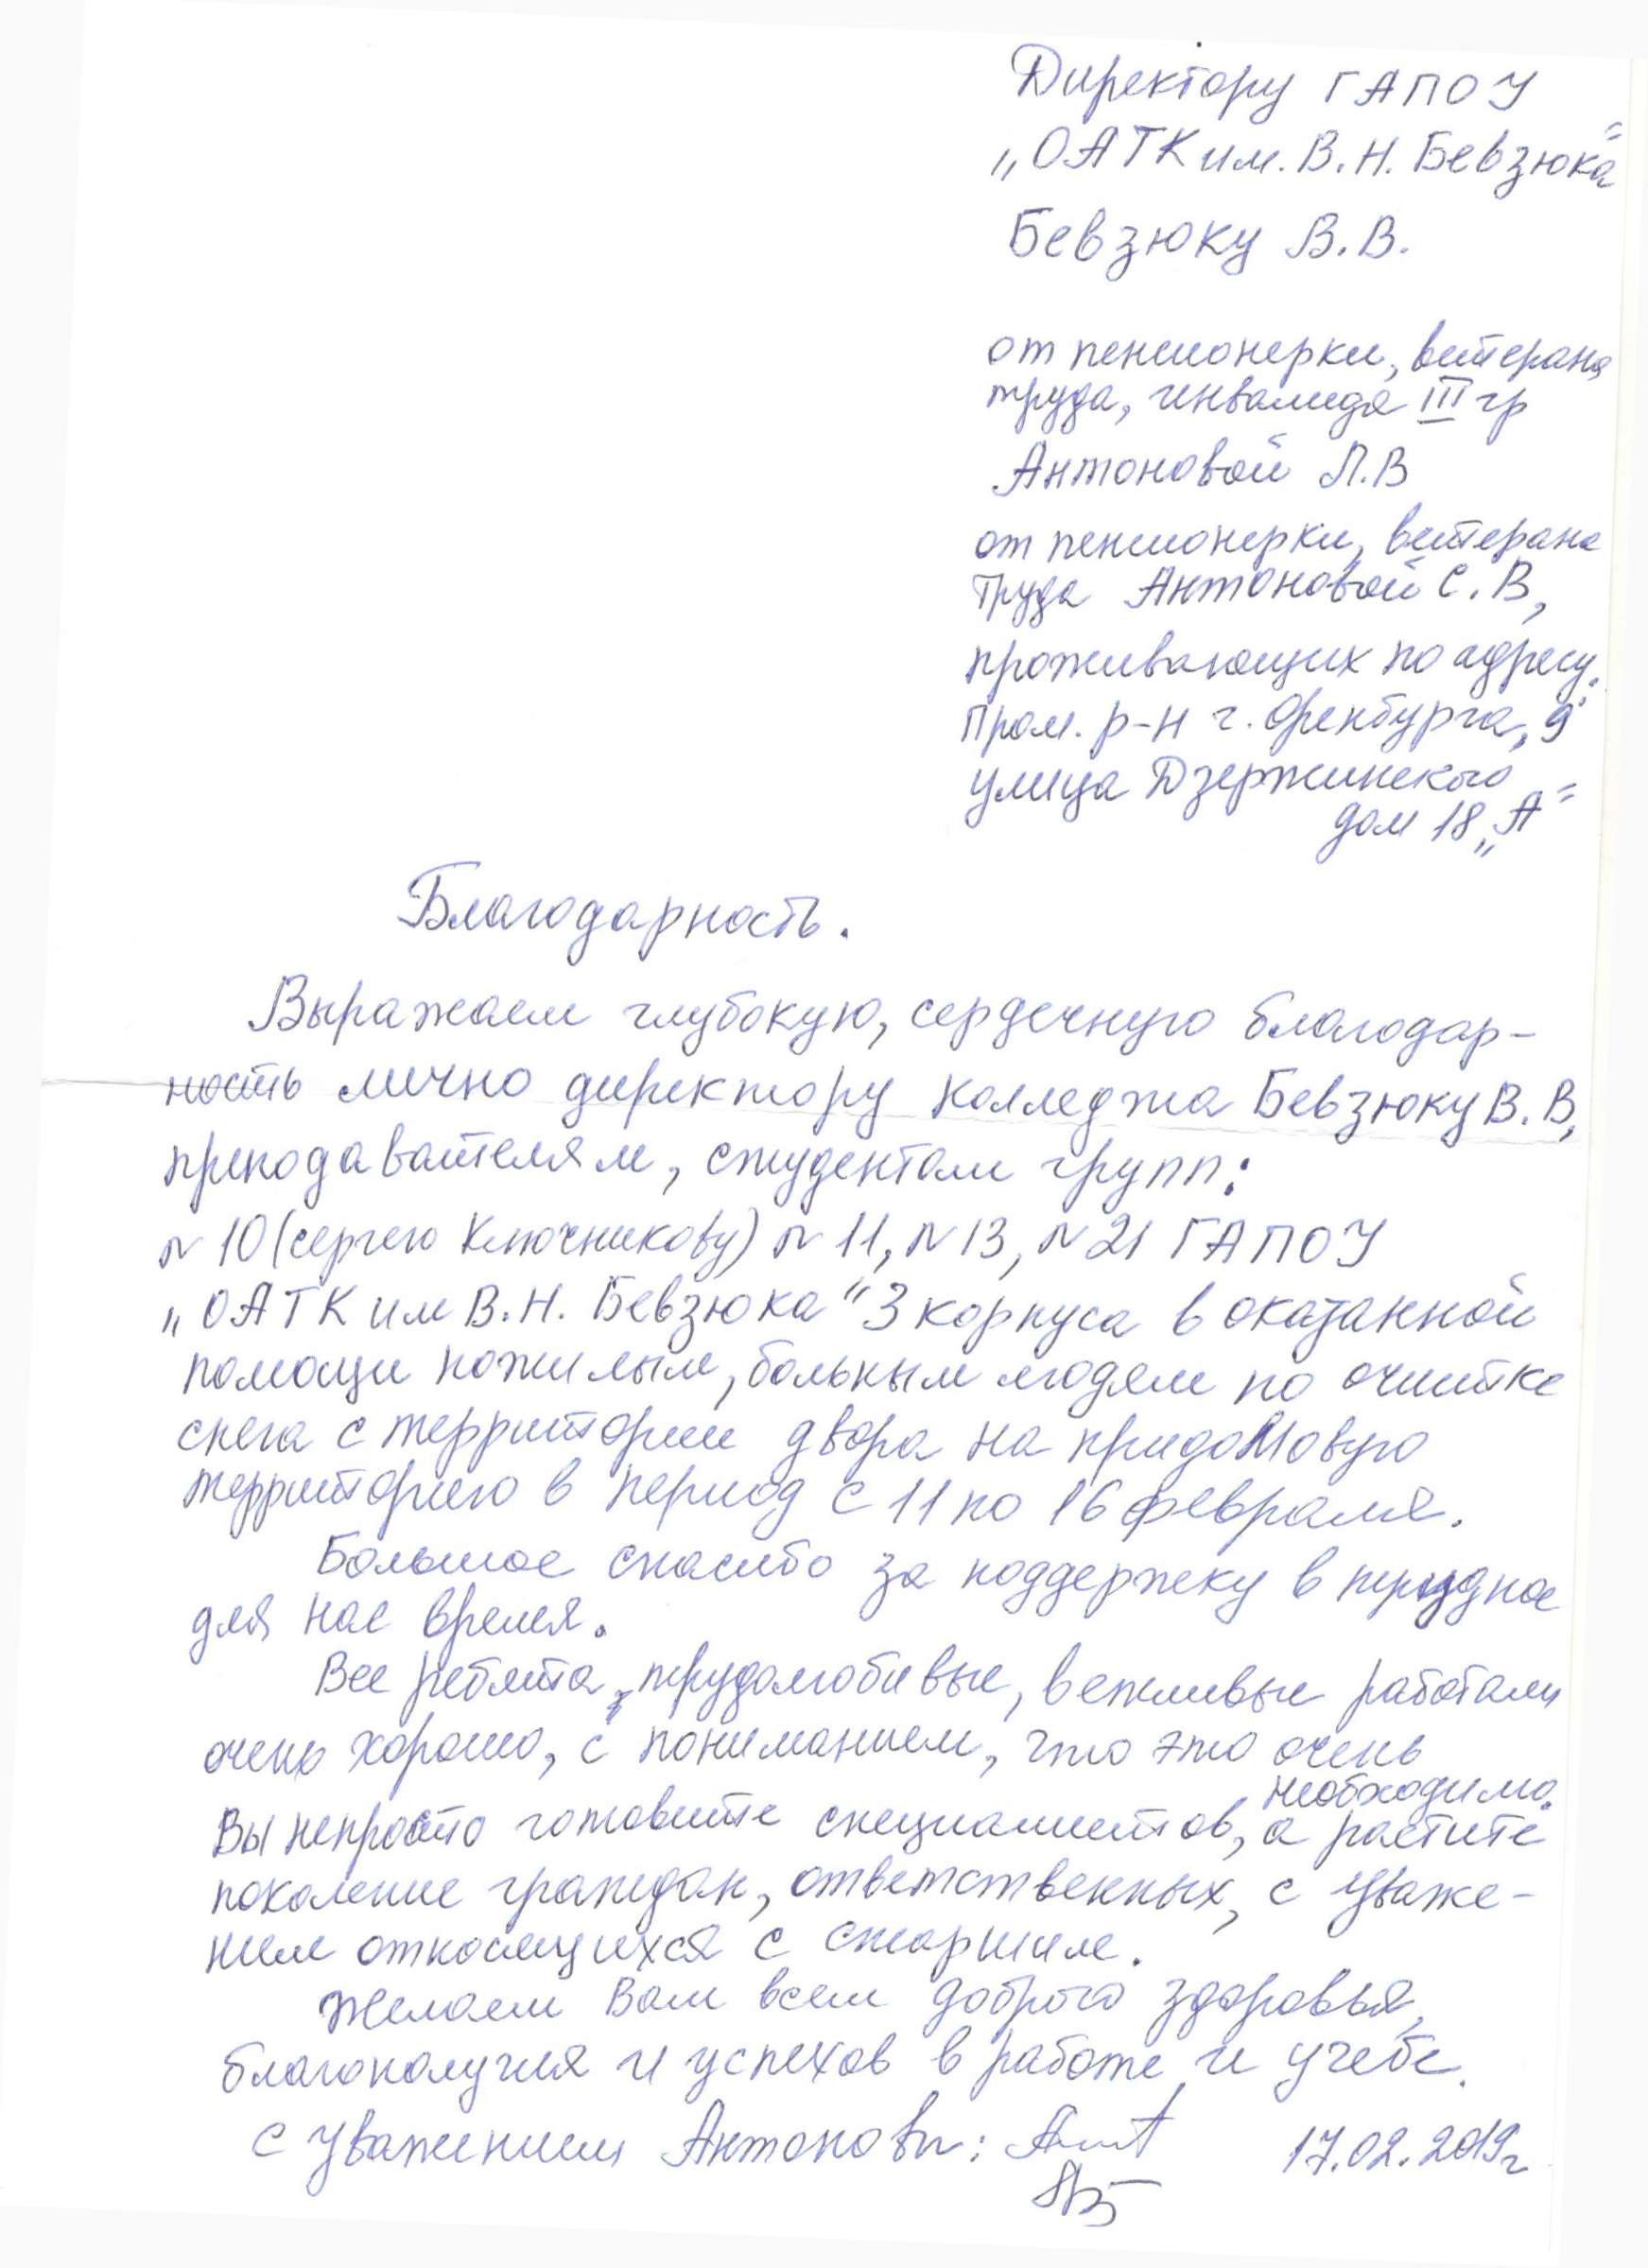 Директору ГАПОУ
„ОАТК им. В.Н. Бевзюка"
Бевзюку В.В.
от пенсионерки, ветерана
труда, инвалида III гр
Антоновой Л.В
от пенсионерки, ветерана
Труда Антоновой С.В,
проживающих по адресу:
Пром. р-н г. Оренбурга, 9
улица Дзержинского
дом 18 „А"
Благодарность.
Выражаем глубокую, сердечную благодар-
ность лично директору колледжа Бевзюку В.В,
преподавателям, студентам групп:
№ 10 (Сергею Ключникову) № 11, № 13, № 21 ГАПОУ
„ОАТК им В.Н. Бевзюка" 3 корпуса в оказанной
помощи пожилым, больным людям по очистке
снега с территории двора на придомовую
территорию в период с 11 по 16 февраля.
Большое спасибо за поддержку в трудное
для нас время.
Все ребята, трудолюбивые, вежливые работали
очень хорошо, с пониманием, что это очень
необходимо.
Вы непросто готовите специалистов, а растите
поколение граждан, ответственных, с уваже-
нием относящихся с старшим.
Желаем Вам всем доброго здоровья,
благополучия и успехов в работе и учебе.
С уважением Антоновы:
17.02.2019г